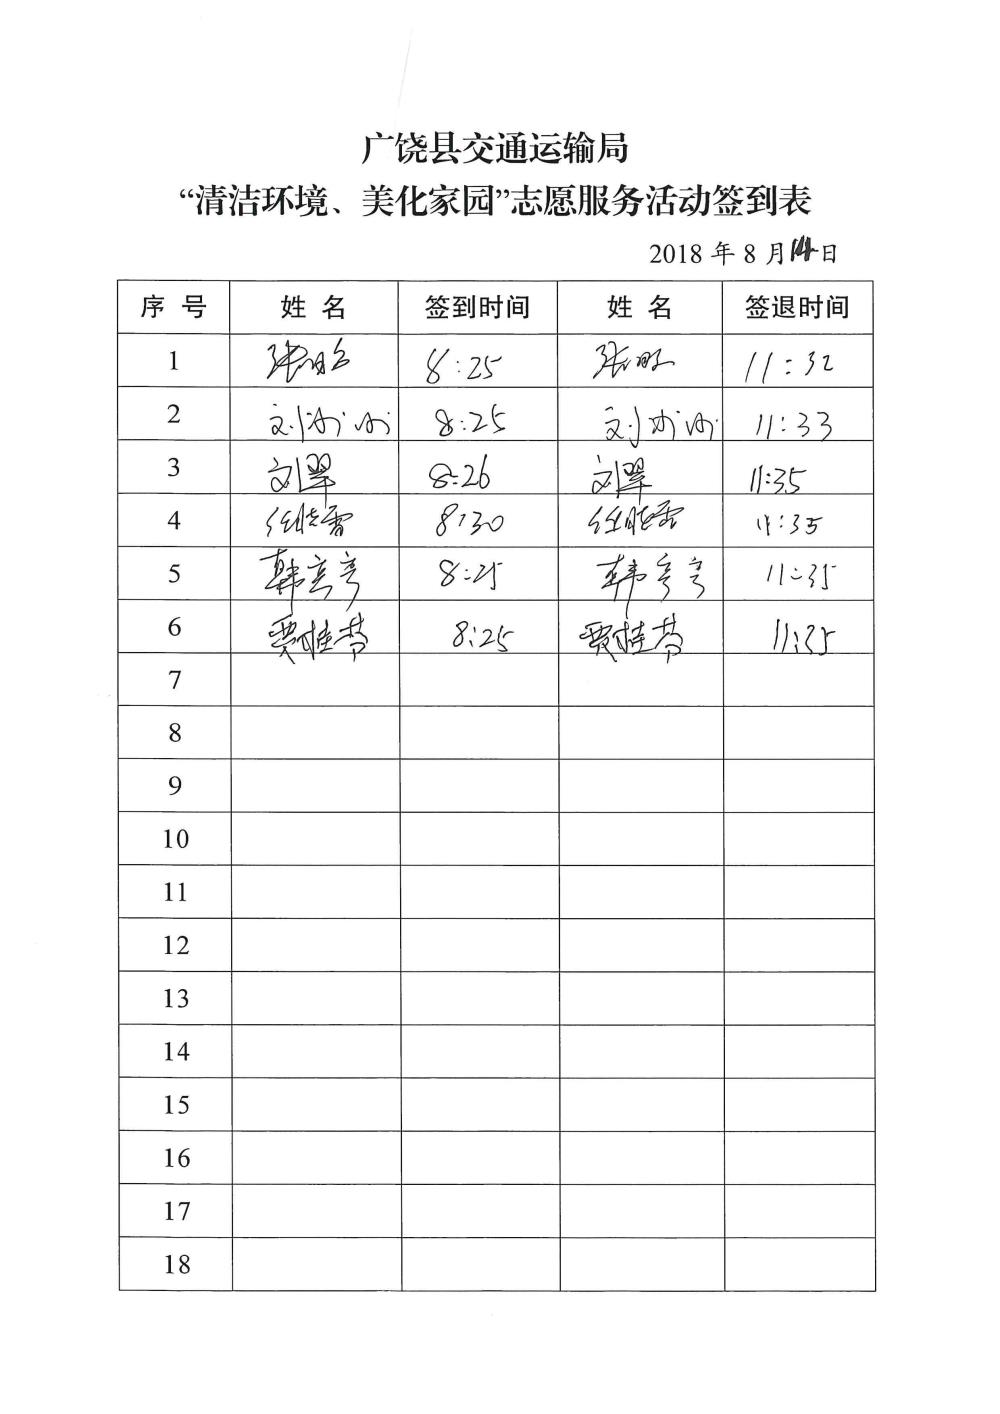 广饶县交通运输局
“清洁环境、美化家园”志愿服务活动签到表
2018 年 8 月14日
序 号 姓 名 签到时间 姓 名 签退时间
1 8:25 11:32
2 刘冰冰 8:25 刘冰冰 11:33
3 刘翠 8:26 刘翠 11:35
4 任晓雷 8:30 任晓雷 11:35
5 韩亮亮 8:25 韩亮亮 11:35
6 贾桂芬 8:25 贾桂芬 11:35
7
8
9
10
11
12
13
14
15
16
17
18